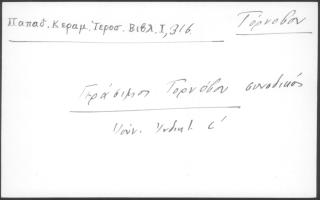 Παπαδ. Κεραμ. Ἱεροσ. Βιβλ. I, 316 Τόρνοβον
Γεράσιμος Τορνόβου συνοδικός
Ἰούν. Ἰνδικτ. ς´